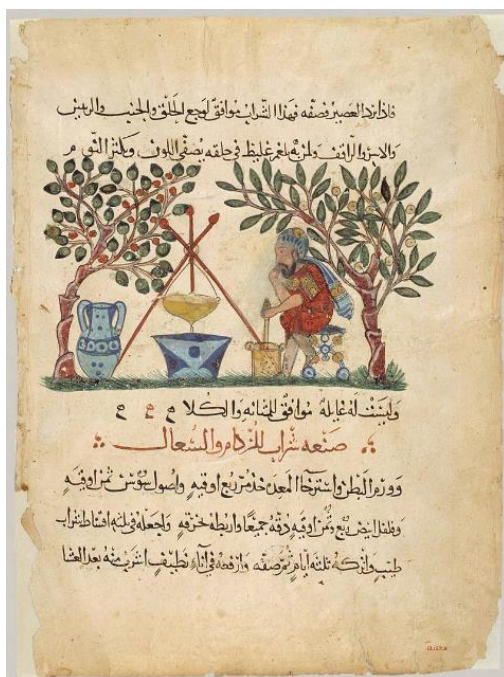 فاذا برد العصير فصفه فهذا الشراب موافق لوجع الحلق والجنب
بلغم غليظ في حلقه يصفى اللون ويكثر النوم
وليست له غايلة موافق للمثانه والكلا
صنعه شراب للزكام والسعال
وورم البطن واسترخا المعده خذ مر ربع اوقيه واصول سوس ثمن اوقيه
وفلفل ابيض ربع وثمن اوقيه دقه جميعا واربطه خرقه واجعله في ثلثه اقساط شراب
طيب واتركه ثلثه ايام ثم صفه وارفعه في اناء نظيف اشرب منه بعد العشا